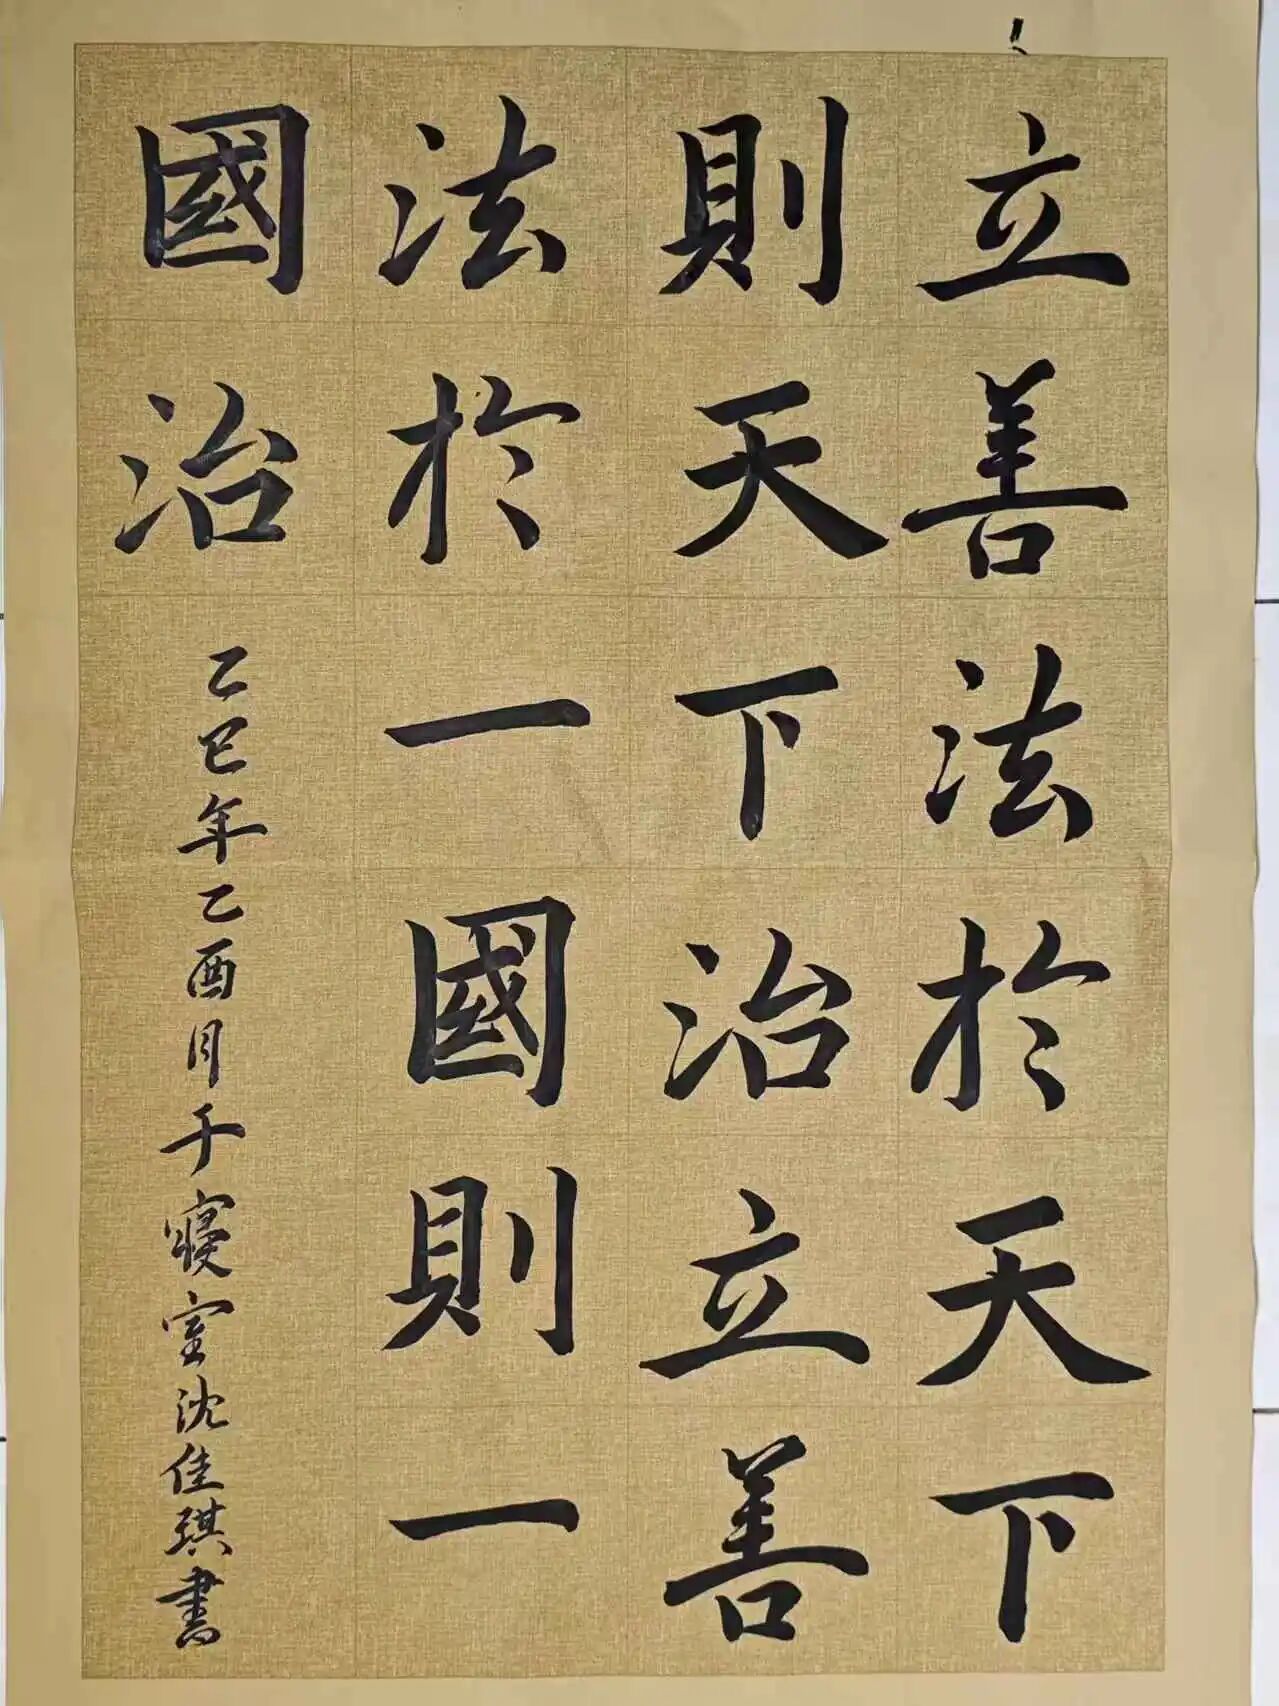 立善法於天下
則天下治立善
法於一國則一
國治
乙巳年乙酉月于寢室沈佳琪書